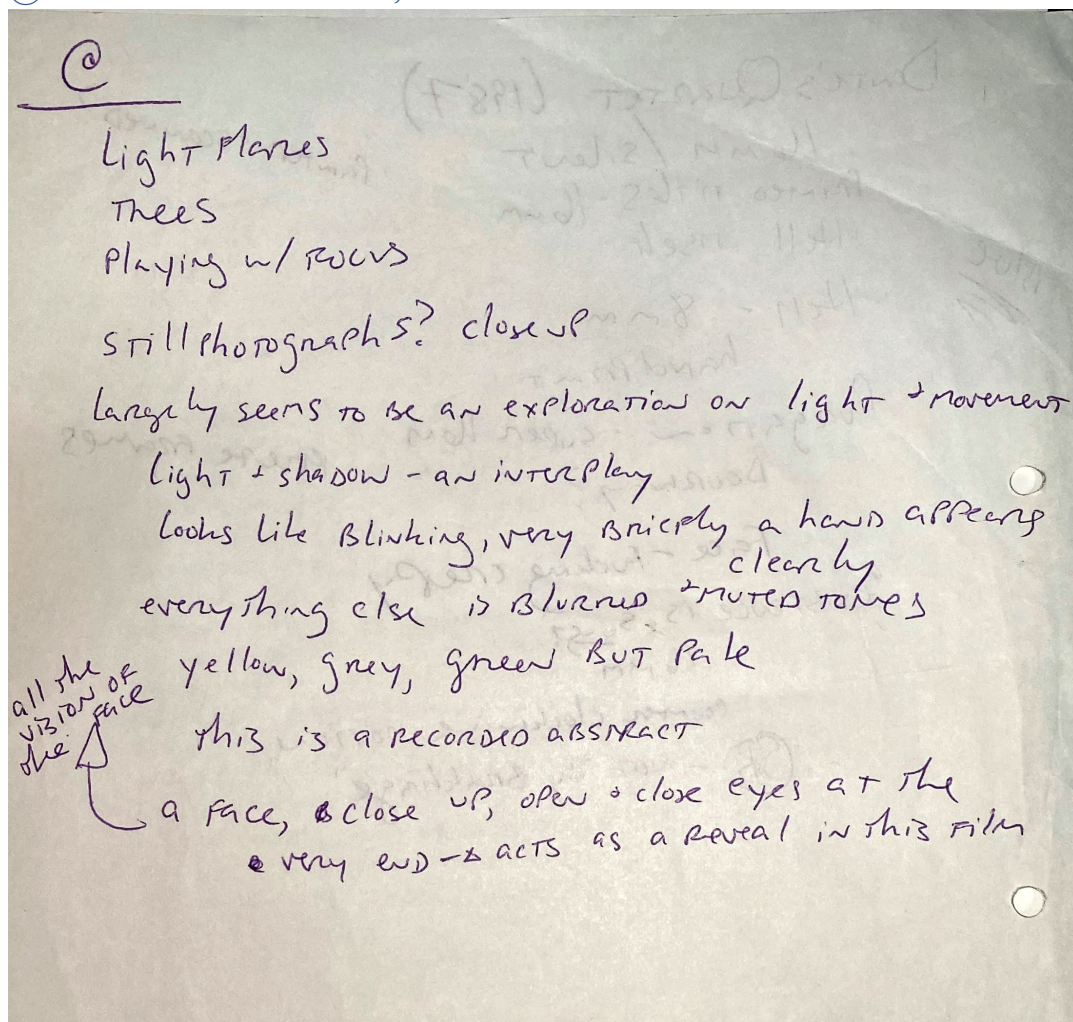 ©
Light Flares
Trees
Playing w/ Focus
Still Photographs? close up
Largely seems to be an exploration on light + movement
Light + shadow - an interplay
Looks like Blinking, very Briefly a hand appears
clearly
everything else is Blurred + muted tones
yellow, grey, green But Pale
all the
vision of
the face
this is a recorded abstract
a face, close up, open + close eyes at the
very end → acts as a reveal in this film
Dante's Quartet (1987)